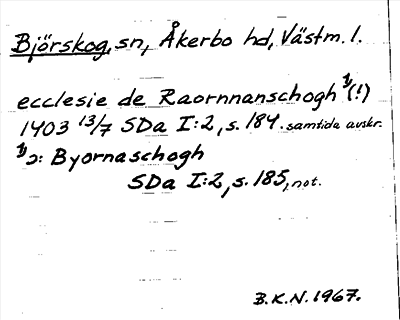 Björskog, sn, Åkerbo hd, Västm. l.
ecclesie de Raornnanschogh 1) (!)
1403 13/7 SDa I:2, s. 184. samtida avskr.
1) ɔ: Byornaschogh
SDa I:2, s. 185, not.
B.K.N. 1967.